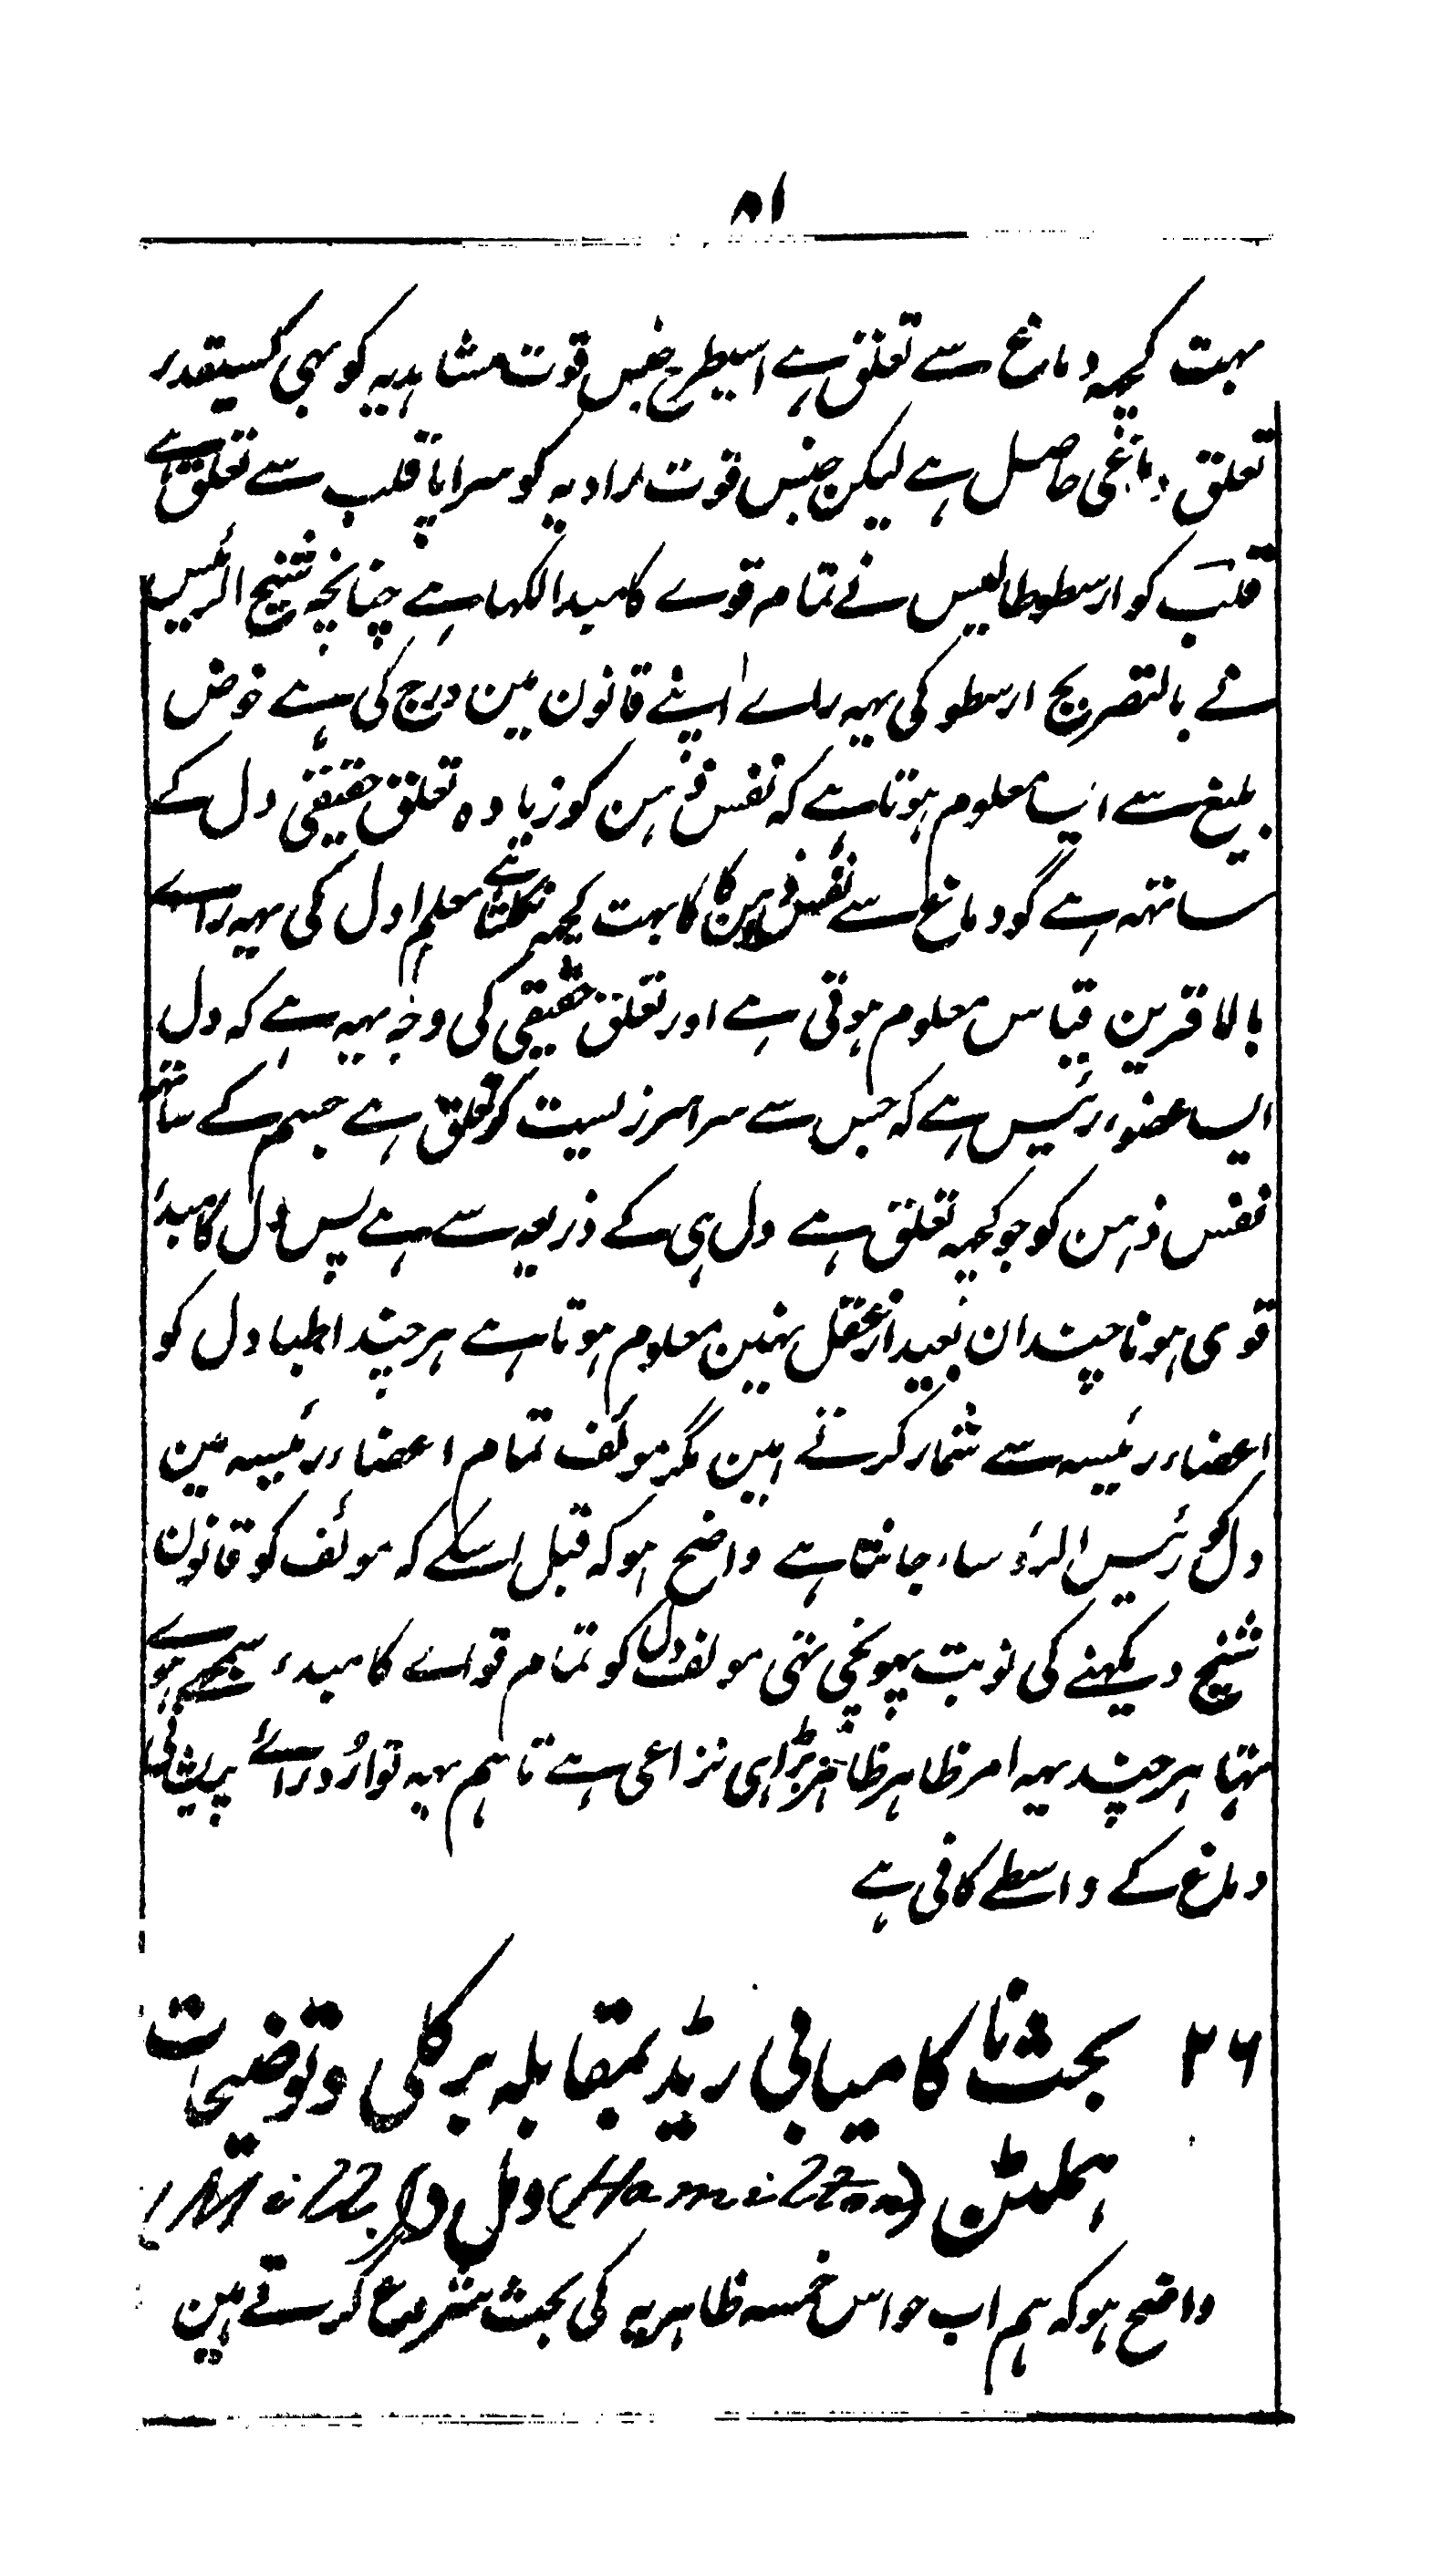 ۸۱
بہت کچہہ دماغ سے تعلق ہے اسیطرح جنس قوت مشاہدیہ کو بہی کسیقدر
تعلق دماغی حاصل ہے لیکن جنس قوت ارادیہ کو سراپا قلب سے تعلق ہے
قلب کو ارسطوطالیس نے تمام قوے کا مبدا لکہا ہے چنانچہ شیخ الرئیس
نے بالتصریح ارسطو کی یہہ راے اپنے قانون مین درج کی ہے خوض
بلیغ سے ایسا معلوم ہوتا ہے کہ نفس ذہن کو زیادہ تعلق حقیقی دل کے
ساتہہ ہے گو دماغ سے نفس ذہن کا بہت کچہہ نکلتا ہے معلم اول کی یہہ راے
بالا قرین قیاس معلوم ہوتی ہے اور تعلق حقیقی کی وجہ یہہ ہے کہ دل
ایسا عضوء رئیس ہے کہ جس سے سراسر زیست کو تعلق ہے جسم کے ساتہہ
نفس ذہن کو جو کچہہ تعلق ہے دل ہی کے ذریعہ سے ہے پس دل کا مبدء
قوی ہونا چندان بعید از عقل نہین معلوم ہوتا ہے ہر چند اطبا دل کو
اعضاء رئیسہ سے شمار کرتے ہین مگر مولف تمام اعضاء رئیسہ مین
دل کو رئیس الرؤساء جانتا ہے واضح ہو کہ قبل اسکے کہ مولف کو قانون
شیخ دیکہنے کی نوبت پہونچی تہی مولف دل کو تمام قواے کا مبدء سمجہے ہوے
تہا ہر چند یہہ امر ظاہر ظاہر بڑا ہی نزاعی ہے تاہم یہہ توارُد راے پریشانی
دماغ کے واسطے کافی ہے
۲۶ بحث ناکامیابی ریڈ بمقابلہ برکلی و توضیحات
ہملٹن (Hamilton) و مل (Mill)
واضح ہو کہ ہم اب حواس خمسہ ظاہریہ کی بحث شروع کرتے ہین